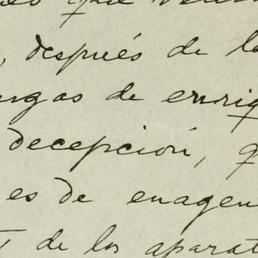 que
, después de l
de enriq
decepción, q
es de enagen
de los aparat